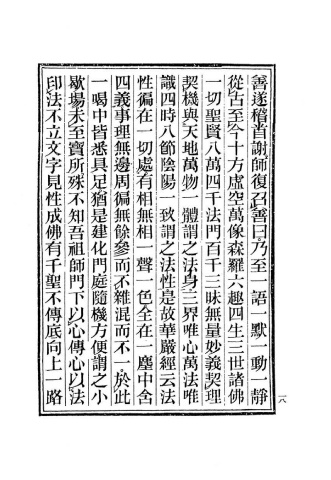 善遂稽首謝師復召善曰乃至一語一默一動一靜
從古至今十方虛空萬像森羅六趣四生三世諸佛
一切聖賢八萬四千法門百千三昧無量妙義契理
契機與天地萬物一體謂之法身三界唯心萬法唯
識四時八節陰陽一致謂之法性是故華嚴經云法
性徧在一切處有相無相一聲一色全在一塵中含
四義事理無邊周徧無餘參而不雜混而不一於此
一喝中皆悉具足猶是建化門庭隨機方便謂之小
歇場未至寶所殊不知吾祖師門下以心傳心以法
印法不立文字見性成佛有千聖不傳底向上一路
一八